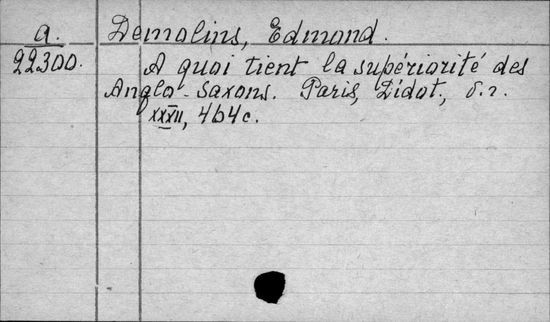 a. Demolins, Edmond.
22300. A quoi tient la supériorité des
Anglo-Saxons. Paris, Didot, s. a.
XXXII, 464 c.